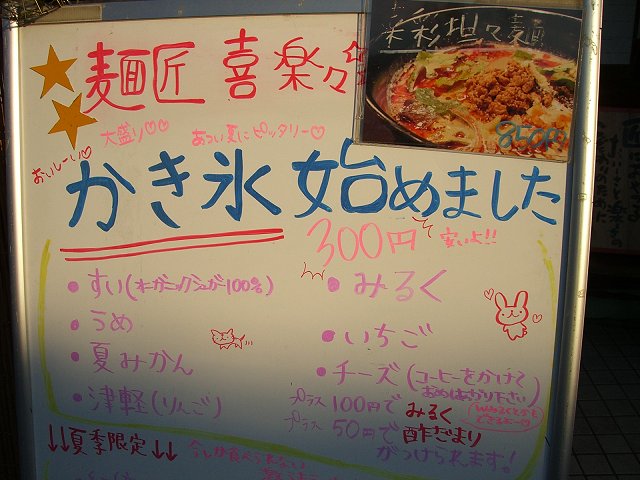 麺匠 喜楽々
彩坦々麺
850円
大盛り♡♡
あつい夏にピッタリー♡
おいしーい♡
かき氷 始めました
300円
安いよ!!
・すい(オーガニックシュガー100%)
・みるく
・うめ
・いちご
・夏みかん
・チーズ(コーヒーをかけて
おめしあがり下さい)
・津軽(りんご)
プラス100円で みるく
プラス50円で 酢だまり
がつけられます!
↓↓夏季限定↓↓
今しか食べられない